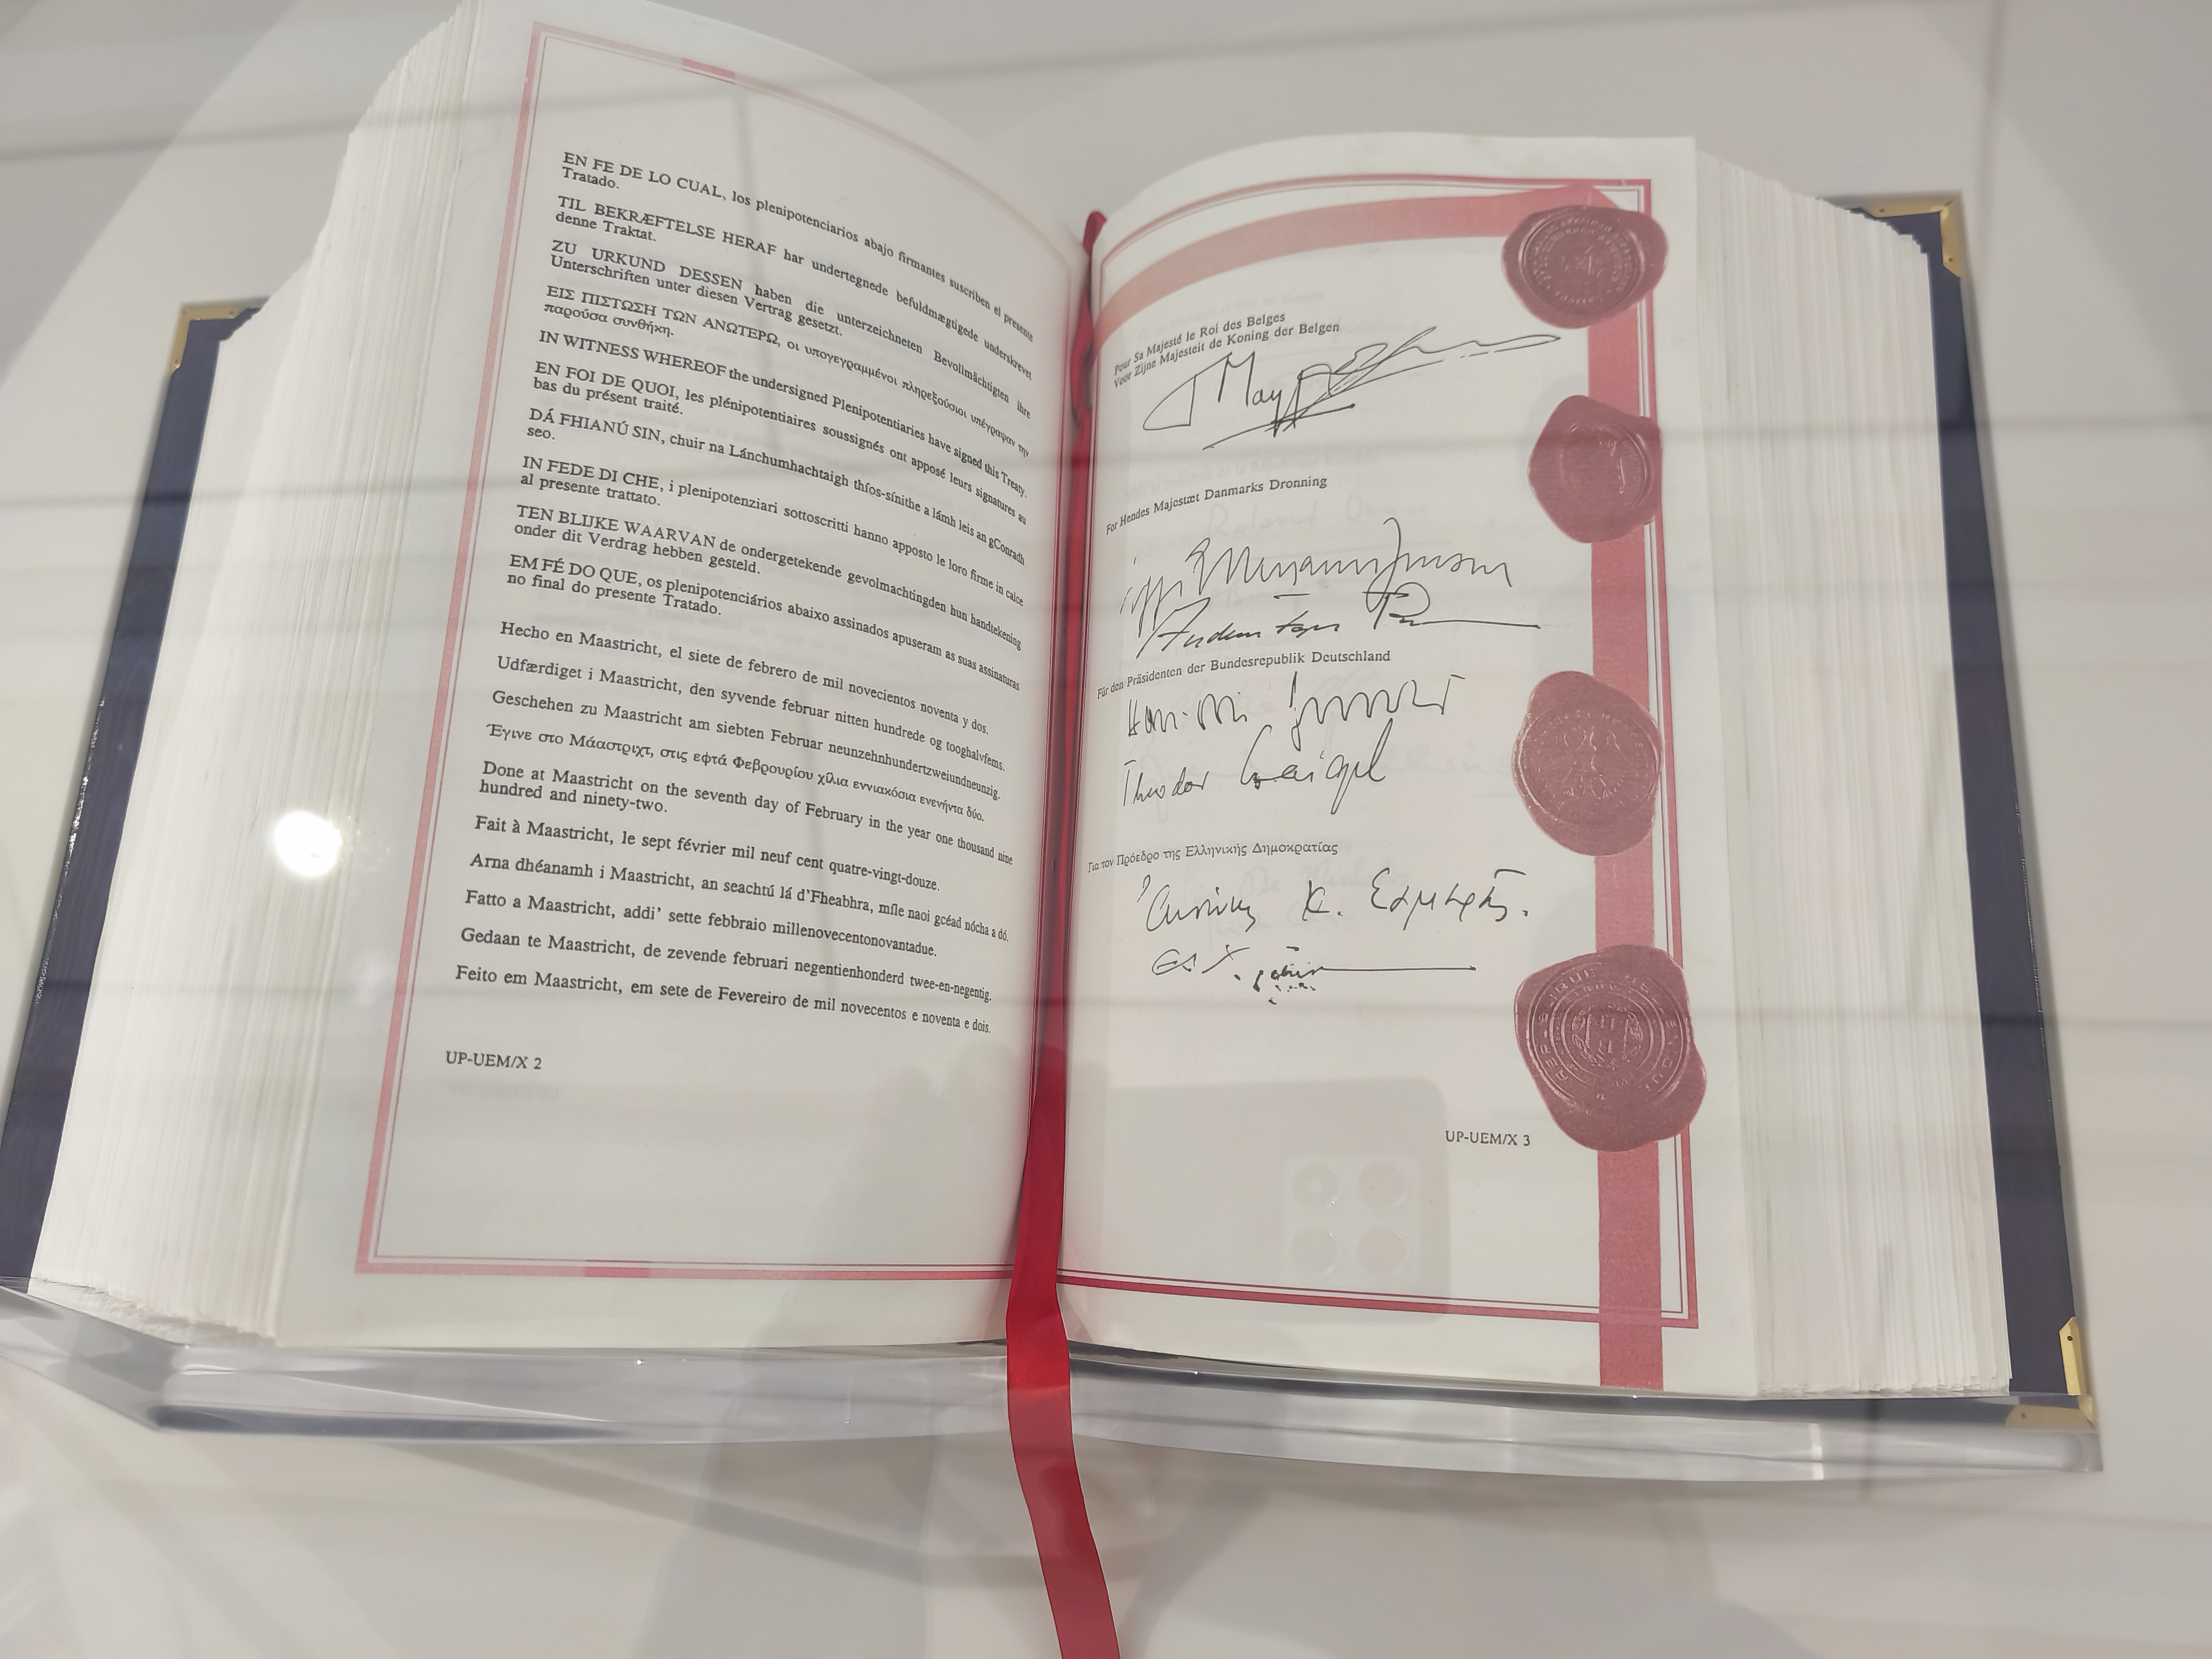 EN FE DE LO CUAL, los plenipotenciarios abajo firmantes suscriben el presente
Tratado.
TIL BEKRÆFTELSE HERAF har undertegnede befuldmægtigede underskrevet
denne Traktat.
ZU URKUND DESSEN haben die unterzeichneten Bevollmächtigten ihre
Unterschriften unter diesen Vertrag gesetzt.
ΕΙΣ ΠΙΣΤΩΣΗ ΤΩΝ ΑΝΩΤΕΡΩ, οι υπογεγραμμένοι πληρεξούσιοι υπέγραψαν την
παρούσα συνθήκη.
IN WITNESS WHEREOF the undersigned Plenipotentiaries have signed this Treaty.
EN FOI DE QUOI, les plénipotentiaires soussignés ont apposé leurs signatures au
bas du présent traité.
DÁ FHIANÚ SIN, chuir na Lánchumhachtaigh thíos-sínithe a lámh leis an gConradh
seo.
IN FEDE DI CHE, i plenipotenziari sottoscritti hanno apposto le loro firme in calce
al presente trattato.
TEN BLIJKE WAARVAN de ondergetekende gevolmachtingden hun handtekening
onder dit Verdrag hebben gesteld.
EM FÉ DO QUE, os plenipotenciários abaixo assinados apuseram as suas assinaturas
no final do presente Tratado.
Hecho en Maastricht, el siete de febrero de mil novecientos noventa y dos.
Udfærdiget i Maastricht, den syvende februar nitten hundrede og tooghalvfems.
Geschehen zu Maastricht am siebten Februar neunzehnhundertzweiundneunzig.
Έγινε στο Μάαστριχτ, στις εφτά Φεβρουρίου χίλια εννιακόσια ενενήντα δύο.
Done at Maastricht on the seventh day of February in the year one thousand nine
hundred and ninety-two.
Fait à Maastricht, le sept février mil neuf cent quatre-vingt-douze.
Arna dhéanamh i Maastricht, an seachtú lá d'Fheabhra, míle naoi gcéad nócha a dó.
Fatto a Maastricht, addi' sette febbraio millenovecentonovantadue.
Gedaan te Maastricht, de zevende februari negentienhonderd twee-en-negentig.
Feito em Maastricht, em sete de Fevereiro de mil novecentos e noventa e dois.
UP-UEM/X 2
Pour Sa Majesté le Roi des Belges
Voor Zijne Majesteit de Koning der Belgen
For Hendes Majestæt Danmarks Dronning
Für den Präsidenten der Bundesrepublik Deutschland
Theodor Waigel
Για τον Πρόεδρο της Ελληνικής Δημοκρατίας
Αντώνης Κ. Σαμαράς.
UP-UEM/X 3